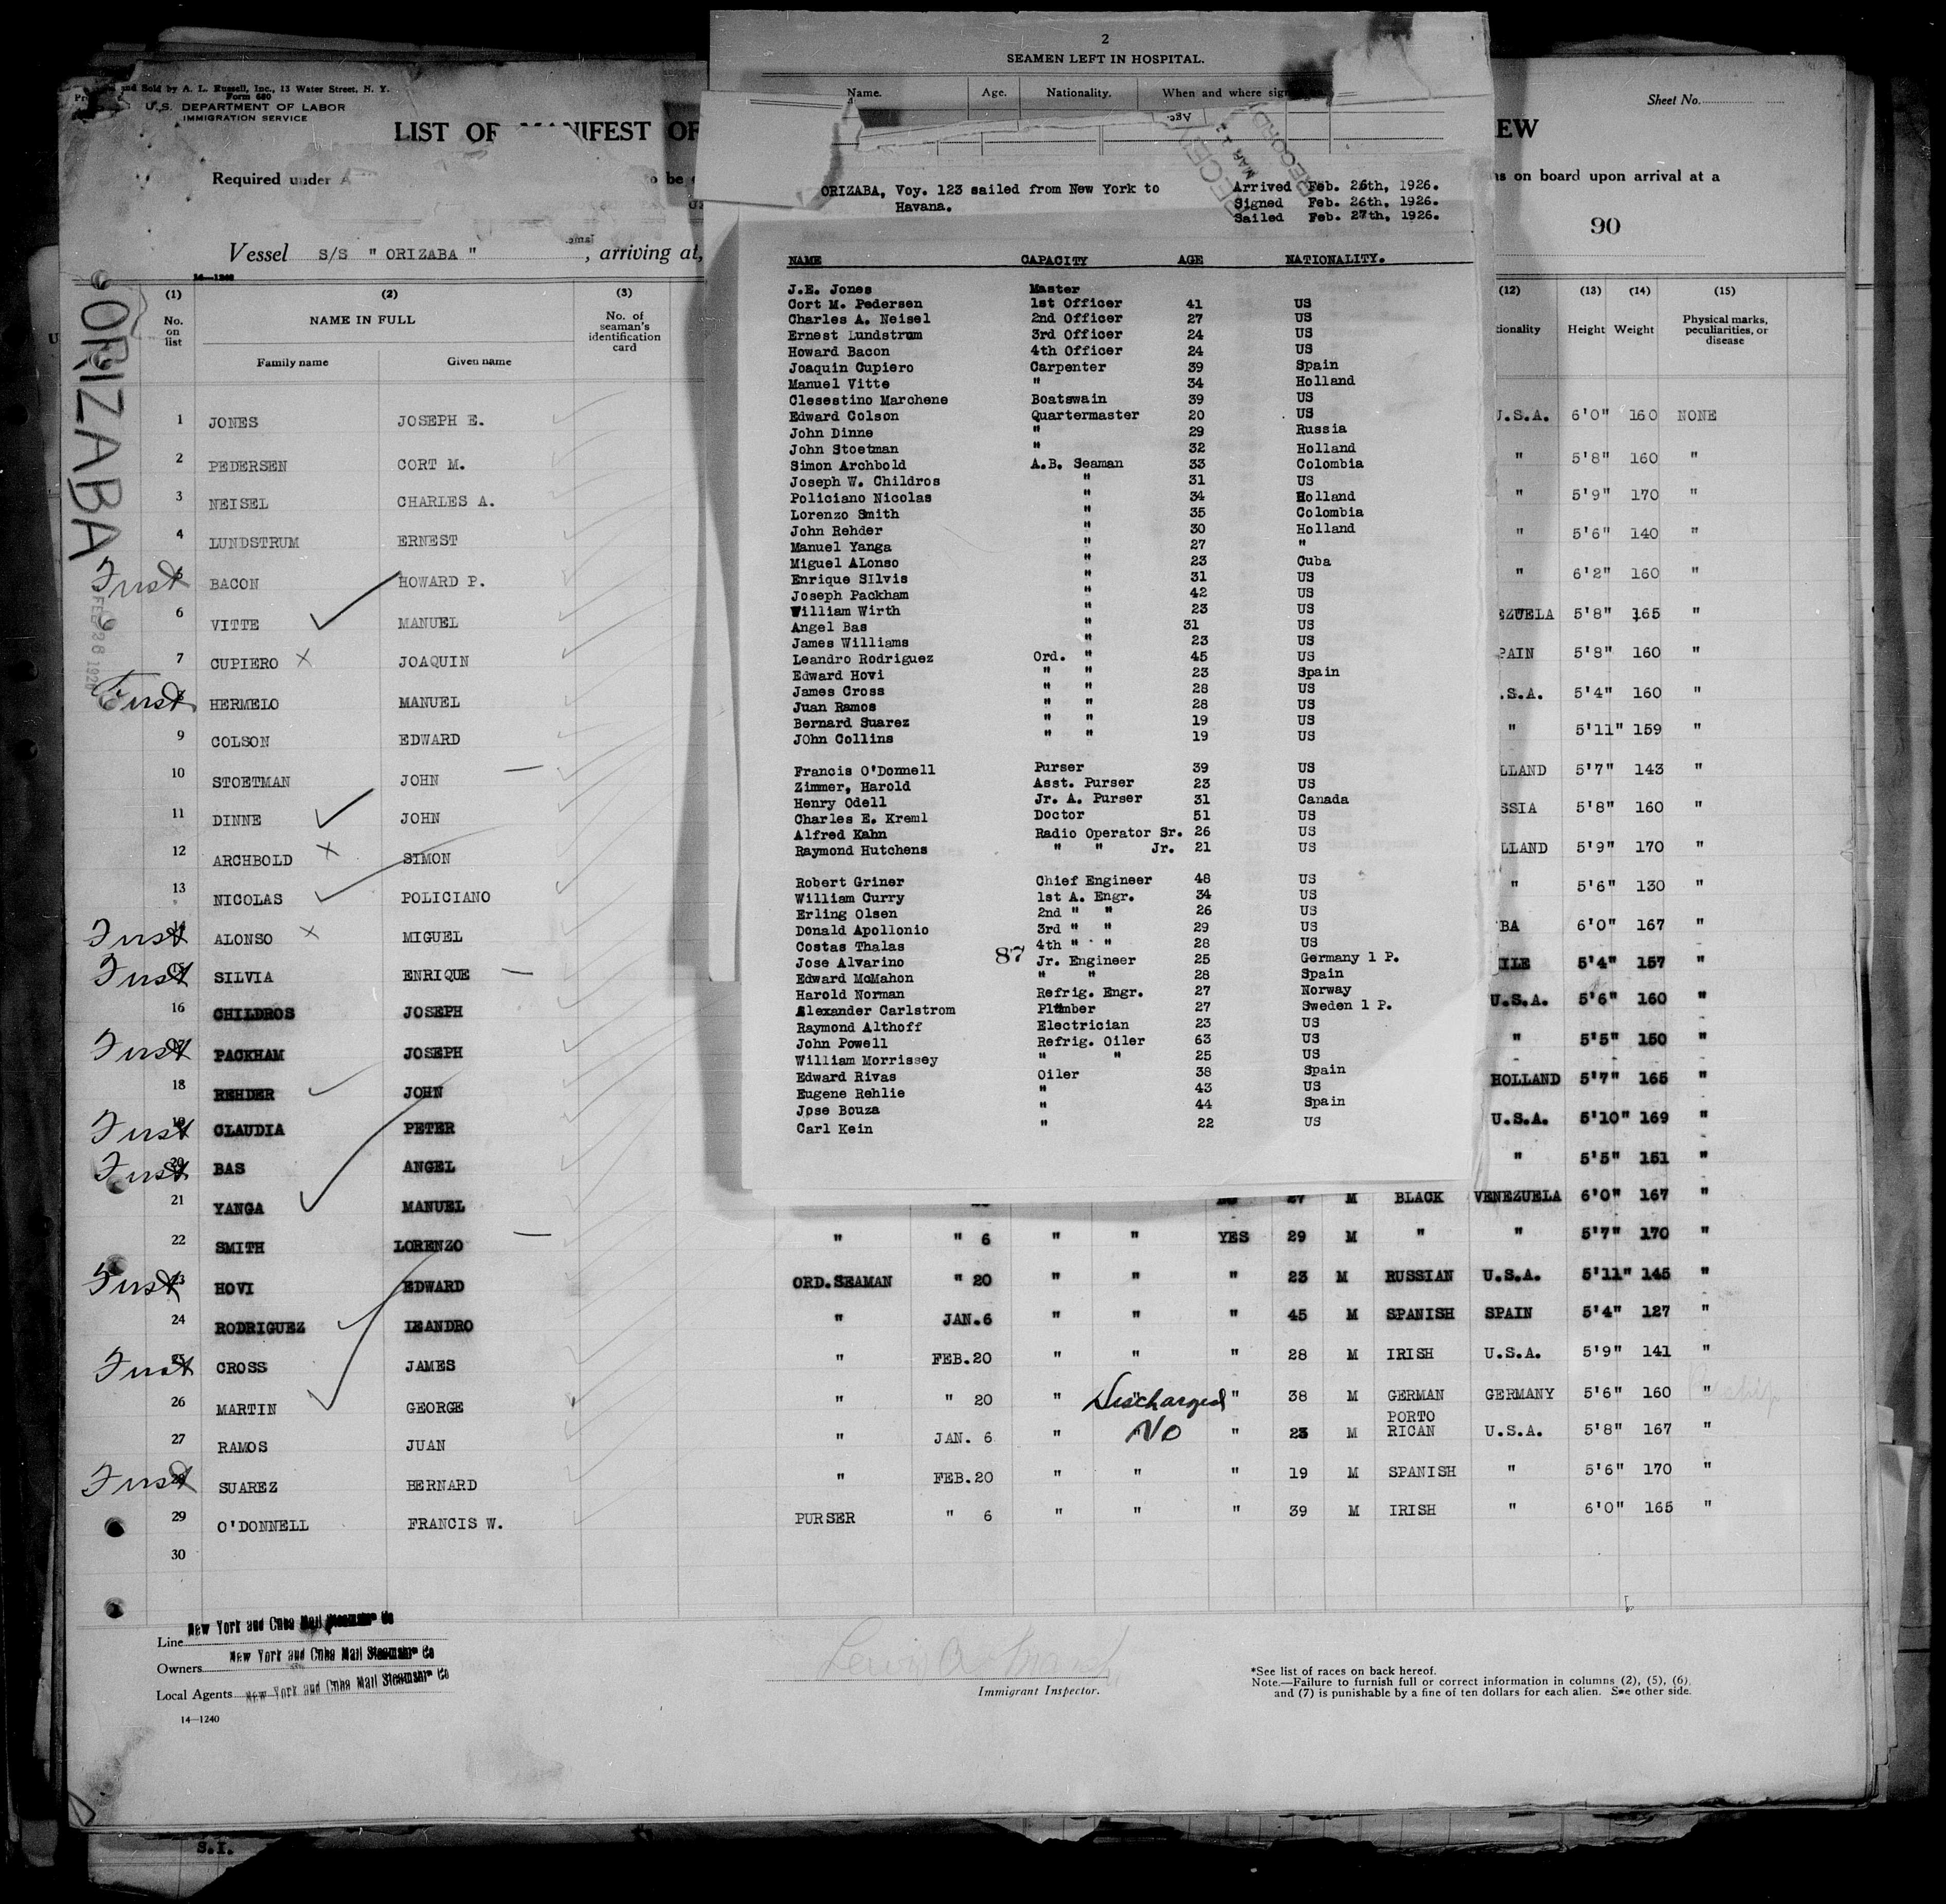 and Sold by A. L. Russell, Inc., 13 Water Street, N. Y.
Form 680
U.S. DEPARTMENT OF LABOR
IMMIGRATION SERVICE
LIST OF MANIFEST OF
EW
Sheet No.
Required under A
to be
ns on board upon arrival at a
90
Vessel S/S " ORIZABA " , arriving at,
14—1240
ORIZABA
FEB 26 1926
2
SEAMEN LEFT IN HOSPITAL.
Name. Age. Nationality. When and where
Age.
MAR
RECORD
ORIZABA, Voy. 123 sailed from New York to Havana.
Arrived Feb. 26th, 1926.
Signed Feb. 26th, 1926.
Sailed Feb. 27th, 1926.
NAME CAPACITY AGE NATIONALITY.
J.E. Jones Master
Cort M. Pedersen 1st Officer 41 US
Charles A. Neisel 2nd Officer 27 US
Ernest Lundstrum 3rd Officer 24 US
Howard Bacon 4th Officer 24 US
Joaquin Cupiero Carpenter 39 Spain
Manuel Vitte " 34 Holland
Clesestino Marchene Boatswain 39 US
Edward Colson Quartermaster 20 US
John Dinne " 29 Russia
John Stoetman " 32 Holland
Simon Archbold A.B. Seaman 33 Colombia
Joseph W. Childros " 31 US
Policiano Nicolas " 34 Holland
Lorenzo Smith " 35 Colombia
John Rehder " 30 Holland
Manuel Yanga " 27 "
Miguel ALonso " 23 Cuba
Enrique SIlvis " 31 US
Joseph Packham " 42 US
William Wirth " 23 US
Angel Bas " 31 US
James Williams " 23 US
Leandro Rodriguez Ord. " 45 US
Edward Hovi " " 23 Spain
James Cross " " 28 US
Juan Ramos " " 28 US
Bernard Suarez " " 19 US
JOhn Collins " " 19 US
Francis O'Donnell Purser 39 US
Zimmer, Harold Asst. Purser 23 US
Henry Odell Jr. A. Purser 31 Canada
Charles E. Kreml Doctor 51 US
Alfred Kahn Radio Operator Sr. 26 US
Raymond Hutchens " " Jr. 21 US
Robert Griner Chief Engineer 48 US
William Curry 1st A. Engr. 34 US
Erling Olsen 2nd " " 26 US
Donald Apollonio 3rd " " 29 US
Costas Thalas 4th " " 28 US
87
Jose Alvarino Jr. Engineer 25 Germany 1 P.
Edward McMahon " " 28 Spain
Harold Norman Refrig. Engr. 27 Norway
Alexander Carlstrom Plumber 27 Sweden 1 P.
Raymond Althoff Electrician 23 US
John Powell Refrig. Oiler 63 US
William Morrissey " " 25 US
Edward Rivas Oiler 38 Spain
Eugene Rehlie " 43 US
Jose Bouza " 44 Spain
Carl Kein " 22 US
(1) (2) (3) (12) (13) (14) (15)
No. on list NAME IN FULL No. of seaman's identification card tionality Height Weight Physical marks, peculiarities, or disease
Family name Given name
1 JONES JOSEPH E. U.S.A. 6'0" 160 NONE
2 PEDERSEN CORT M. " 5'8" 160 "
3 NEISEL CHARLES A. " 5'9" 170 "
4 LUNDSTRUM ERNEST " 5'6" 140 "
First BACON HOWARD P. " 6'2" 160 "
6 VITTE MANUEL EZUELA 5'8" 165 "
7 CUPIERO JOAQUIN PAIN 5'8" 160 "
First HERMELO MANUEL .S.A. 5'4" 160 "
9 COLSON EDWARD " 5'11" 159 "
10 STOETMAN JOHN LLAND 5'7" 143 "
11 DINNE JOHN SSIA 5'8" 160 "
12 ARCHBOLD SIMON LLAND 5'9" 170 "
13 NICOLAS POLICIANO " 5'6" 130 "
First 14 ALONSO MIGUEL BA 6'0" 167 "
First 15 SILVIA ENRIQUE ILE 5'4" 157 "
16 CHILDROS JOSEPH U.S.A. 5'6" 160 "
First 17 PACKHAM JOSEPH " 5'5" 150 "
18 REHDER JOHN HOLLAND 5'7" 165 "
First 19 CLAUDIA PETER U.S.A. 5'10" 169 "
First 20 BAS ANGEL " 5'5" 151 "
21 YANGA MANUEL 27 M BLACK VENEZUELA 6'0" 167 "
22 SMITH LORENZO " " 6 " " YES 29 M " " 5'7" 170 "
First 23 HOVI EDWARD ORD.SEAMAN " 20 " " " 23 M RUSSIAN U.S.A. 5'11" 145 "
24 RODRIGUEZ LEANDRO " JAN.6 " " " 45 M SPANISH SPAIN 5'4" 127 "
First 25 CROSS JAMES " FEB.20 " " " 28 M IRISH U.S.A. 5'9" 141 "
26 MARTIN GEORGE " " 20 " Discharged " 38 M GERMAN GERMANY 5'6" 160 "
27 RAMOS JUAN " JAN. 6 " No " 23 M PORTO RICAN U.S.A. 5'8" 167 "
First SUAREZ BERNARD " FEB.20 " " " 19 M SPANISH " 5'6" 170 "
29 O'DONNELL FRANCIS W. PURSER " 6 " " " 39 M IRISH " 6'0" 165 "
30
Line New York and Cuba Mail Steamship Co
Owners New York and Cuba Mail Steamship Co
Local Agents New York and Cuba Mail Steamship Co
14—1240
Immigrant Inspector.
*See list of races on back hereof.
Note.—Failure to furnish full or correct information in columns (2), (5), (6), and (7) is punishable by a fine of ten dollars for each alien. See other side.
S.I.